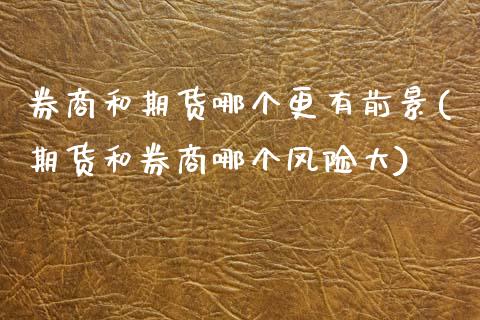 券商和期货哪个更有前景(
期货和券商哪个风险大)